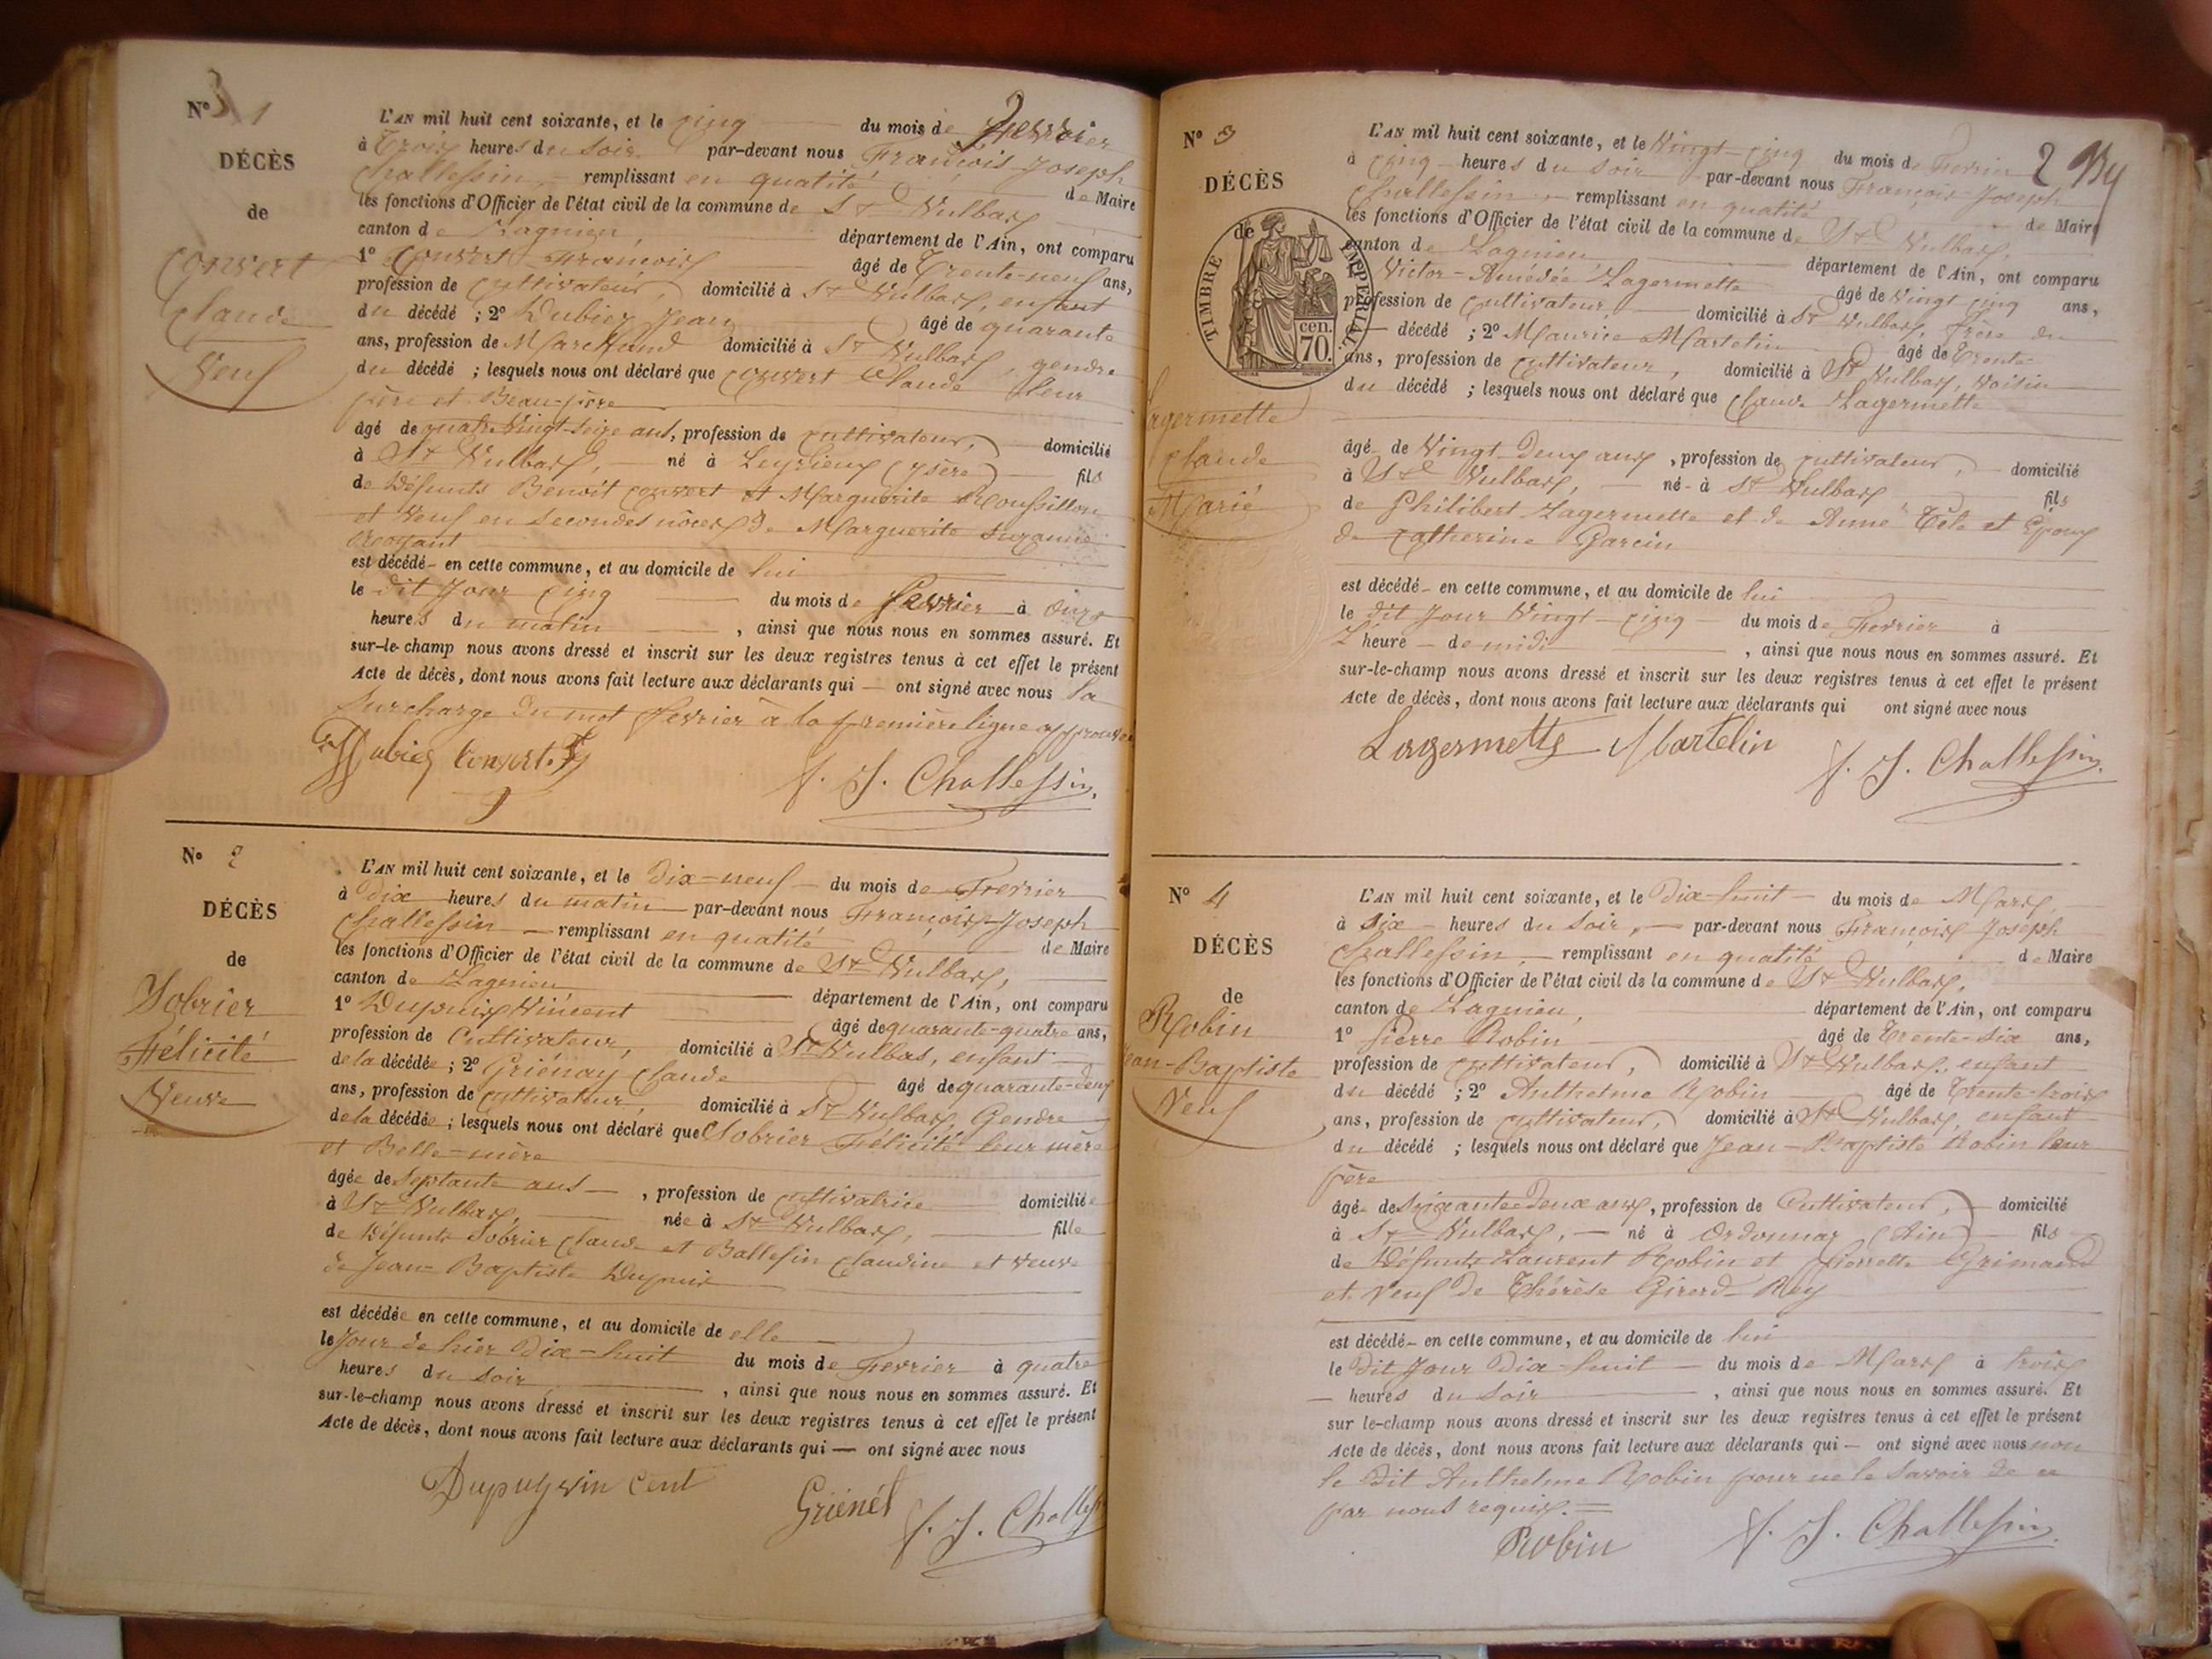 N° 1
DÉCÈS
de
Convert
Claude
Veuf
L'AN mil huit cent soixante, et le cinq du mois de Fevrier
à Trois heures du soir par-devant nous François Joseph
Challessin, remplissant en qualité de Maire
les fonctions d'Officier de l'état civil de la commune de St Vulbas
canton de Lagnieu, département de l'Ain, ont comparu
1° Convert François âgé de Trente-neuf ans,
profession de Cultivateur, domicilié à St Vulbas, enfant
du décédé ; 2° Dubiez Jean âgé de quarante
ans, profession de Marchand domicilié à St Vulbas, gendre
du décédé ; lesquels nous ont déclaré que Convert Claude leur
père et Beau-père
âgé de quatre Vingt-seize ans, profession de cultivateur, domicilié
à St Vulbas, né à Leyrieux (Ysère) fils
de Défunts Benoit Convert et Marguerite Roussillon
et Veuf en secondes nôces de Marguerite Suzanne
est décédé en cette commune, et au domicile de lui
le dit Jour cinq du mois de fevrier à onze
heures du matin, ainsi que nous nous en sommes assuré. Et
sur-le-champ nous avons dressé et inscrit sur les deux registres tenus à cet effet le présent
Acte de décès, dont nous avons fait lecture aux déclarants qui — ont signé avec nous la
surcharge du mot fevrier à la première ligne approuvée
Dubiez Convert F. J. Challessin
N° 2
DÉCÈS
de
Sobrier
Félicité
Veuve
L'AN mil huit cent soixante, et le Dix-neuf du mois de Fevrier
à Dix heures du matin par-devant nous François Joseph
Challessin — remplissant en qualité de Maire
les fonctions d'Officier de l'état civil de la commune de St Vulbas,
canton de Lagnieu département de l'Ain, ont comparu
1° Dupuis Vincent âgé de quarante-quatre ans,
profession de Cultivateur, domicilié à St Vulbas, enfant
de la décédée ; 2° Griénay Claude âgé de quarante-deux
ans, profession de cultivateur, domicilié à St Vulbas, Gendre
de la décédée ; lesquels nous ont déclaré que Sobrier Félicité leur mère
et Belle-mère
âgée de Septante ans — , profession de cultivatrice domiciliée
à St Vulbas, née à St Vulbas, fille
de Défunts Sobrier Claude et Ballesin Claudine et veuve
de Jean-Baptiste Dupuis
est décédée en cette commune, et au domicile de elle
le Jour de hier Dix-huit du mois de Fevrier à quatre
heures du soir, ainsi que nous nous en sommes assuré. Et
sur-le-champ nous avons dressé et inscrit sur les deux registres tenus à cet effet le présent
Acte de décès, dont nous avons fait lecture aux déclarants qui — ont signé avec nous
Dupuy vin cent Griénél F. J. Challess
N° 3
DÉCÈS
de
TIMBRE IMPERIAL
cen.
70.
Lagermette
Claude
Marié
2
L'AN mil huit cent soixante, et le Vingt-cinq du mois de Fevrier
à cinq heures du soir par-devant nous François Joseph
Challessin remplissant en qualité de Maire
les fonctions d'Officier de l'état civil de la commune de St Vulbas,
canton de Lagnieu département de l'Ain, ont comparu
Victor-Amédée Lagermette âgé de Vingt cinq ans,
profession de cultivateur, domicilié à St Vulbas, frère du
décédé ; 2° Maurice Martelin âgé de Trente
ans, profession de cultivateur, domicilié à St Vulbas, Voisin
du décédé ; lesquels nous ont déclaré que Claude Lagermette
âgé de Vingt-Deux ans, profession de cultivateur, domicilié
à St Vulbas, né à St Vulbas fils
de Philibert Lagermette et de Anne Tête et Époux
de Catherine Garcin
est décédé en cette commune, et au domicile de lui
le dit Jour Vingt-cinq du mois de Fevrier à
heure de midi, ainsi que nous nous en sommes assuré. Et
sur-le-champ nous avons dressé et inscrit sur les deux registres tenus à cet effet le présent
Acte de décès, dont nous avons fait lecture aux déclarants qui ont signé avec nous
Lagermette Martelin F. J. Challessin
N° 4
DÉCÈS
de
Robin
Jean-Baptiste
Veuf
L'AN mil huit cent soixante, et le Dix-huit du mois de Mars,
à Six heures du soir, par-devant nous François Joseph
Challessin, remplissant en qualité de Maire
les fonctions d'Officier de l'état civil de la commune de St Vulbas,
canton de Lagnieu, département de l'Ain, ont comparu
1° Pierre Robin âgé de Trente-Six ans,
profession de cultivateur, domicilié à St Vulbas, enfant
du décédé ; 2° Anthelme Robin âgé de Trente-trois
ans, profession de cultivateur, domicilié à St Vulbas, enfant
du décédé ; lesquels nous ont déclaré que Jean-Baptiste Robin leur
père
âgé de soixante Deux ans, profession de Cultivateur, domicilié
à St Vulbas, — né à Ordonnaz (Ain) fils
de Défunts Laurent Robin et Pierrette Grimaud
et Veuf de Thérèse Girerd-Rey
est décédé en cette commune, et au domicile de lui
le Dit Jour Dix-huit du mois de Mars à trois
— heures du soir, ainsi que nous nous en sommes assuré. Et
sur le-champ nous avons dressé et inscrit sur les deux registres tenus à cet effet le présent
Acte de décès, dont nous avons fait lecture aux déclarants qui — ont signé avec nous non
le dit Anthelme Robin pour ne le savoir de ce
par nous requis.
Robin F. J. Challessin